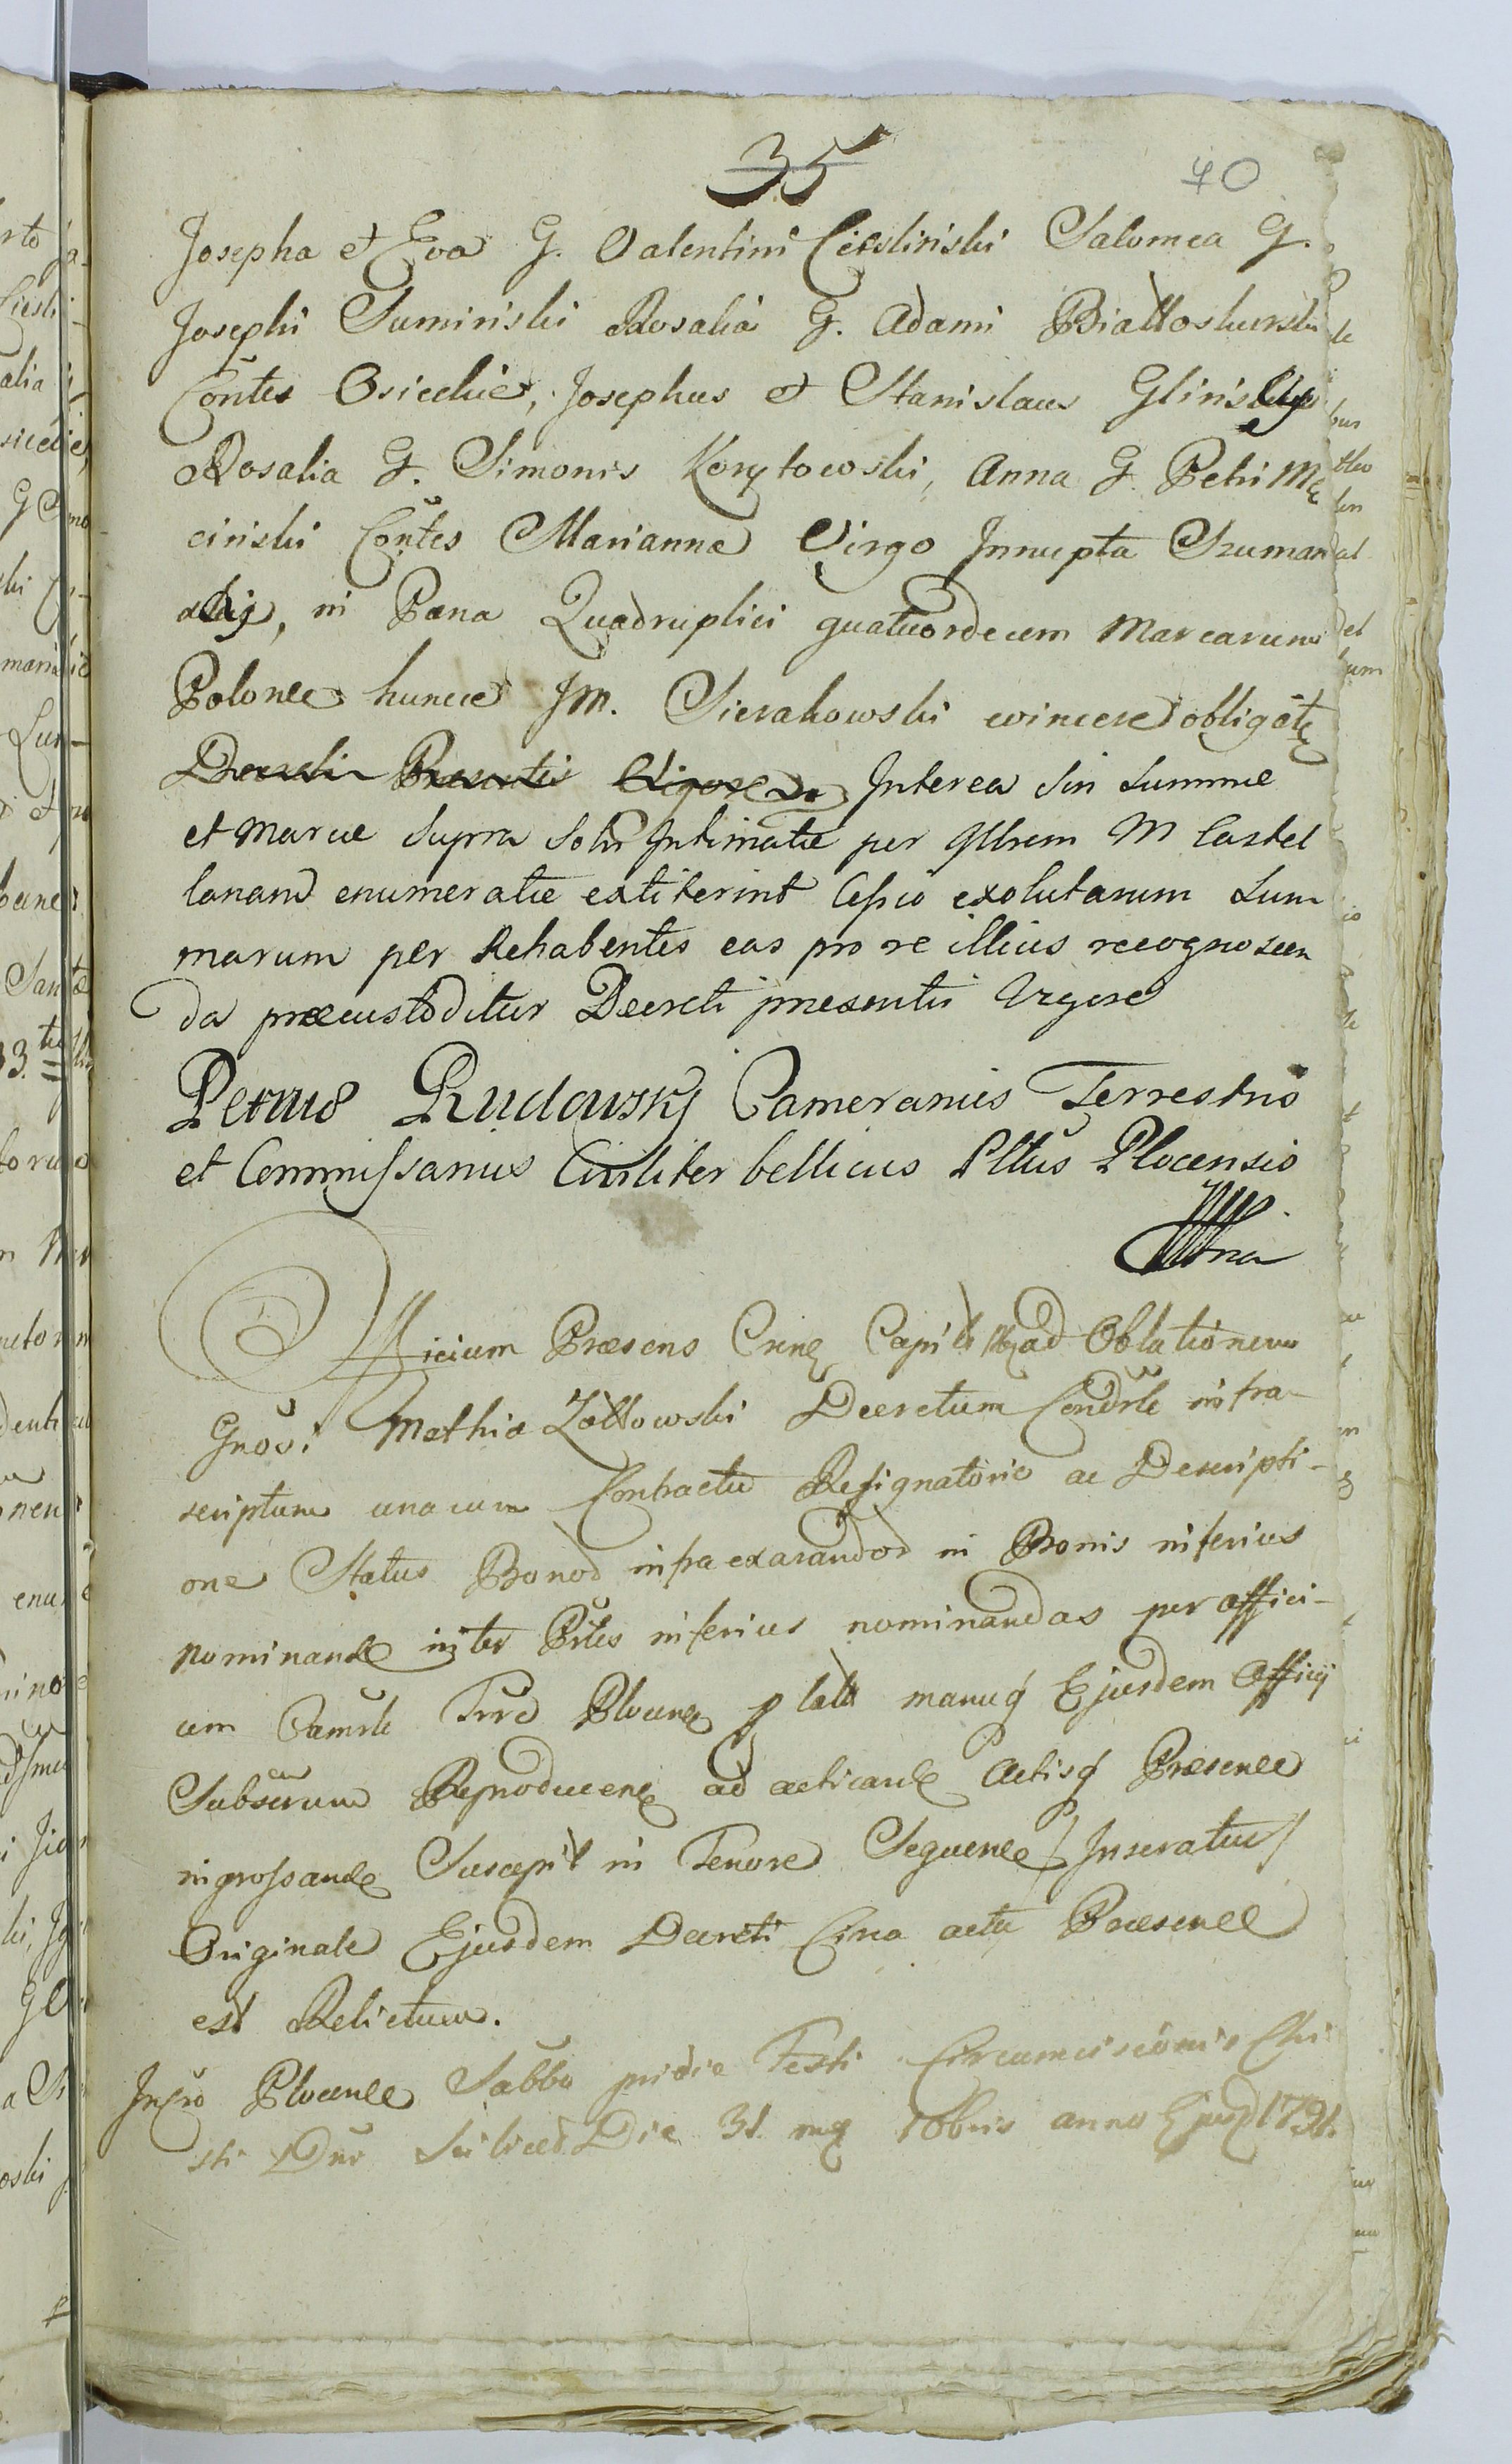 35
70
Josepha et Eva G. Valentini Cieslinski Salomea G.
Josephi Suminski Rosalia G. Adami Białłoskurski
Contes Osieckie, Josephus et Stanislaus Glinskij
Rosalia G. Simonis Korytowski, Anna G. Petri Mę
cinski Contes Marianna Virgo Innupta Szuman
skij, in Pæna Quadruplici quatuordecem Marcarum
Polonee hunce JM. Sierakowski evincere obligat
Decreti Presentis Vigore Interea Sin Summæ
et Marcæ Supra Intimatæ per Illrem M Castel
lanam enumeratæ extiterint Cessio exolutarum Sum
marum per Rehabentes eas pro re illius recognoscen
da præcustoditur Decreti presentis Vigore
Petrus Rudowskj Camerarius Terrestris
et Commissarius Civiliter bellicus Pltus Plocensis
Officium Præsens Crine Capitle ad Oblationem
Gnosi Mathiæ Zółtowski Decretum Condrle infra-
scriptum unacum Contractu Resignatorio ac Descripti-
one Status Bonod infra exarandod in Bonis inferius
nominand inter Ptes inferius nominandas per offici-
um Camrle Trre Plocen manuq Ejusdem Officij
Subscrum Reproducen ad acticand Actisq Præsence
ingrossand Suscepit in Tenore Sequence / Inseratur /
Originale Ejusdem Decreti Circa acta Præsence
est Relictum.
Plocence Sabbo pridie Festi Circumcisionis Chri
sti Dni Scilicet Die 31 mq Xbris anno Ejusd 1791.